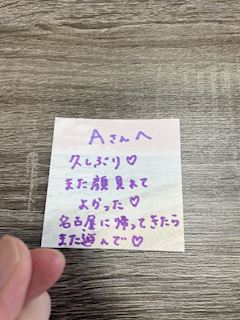 Aさんへ
久しぶり♡
また顔見れて
よかった♡
名古屋に帰ってきたら
また遊んで♡